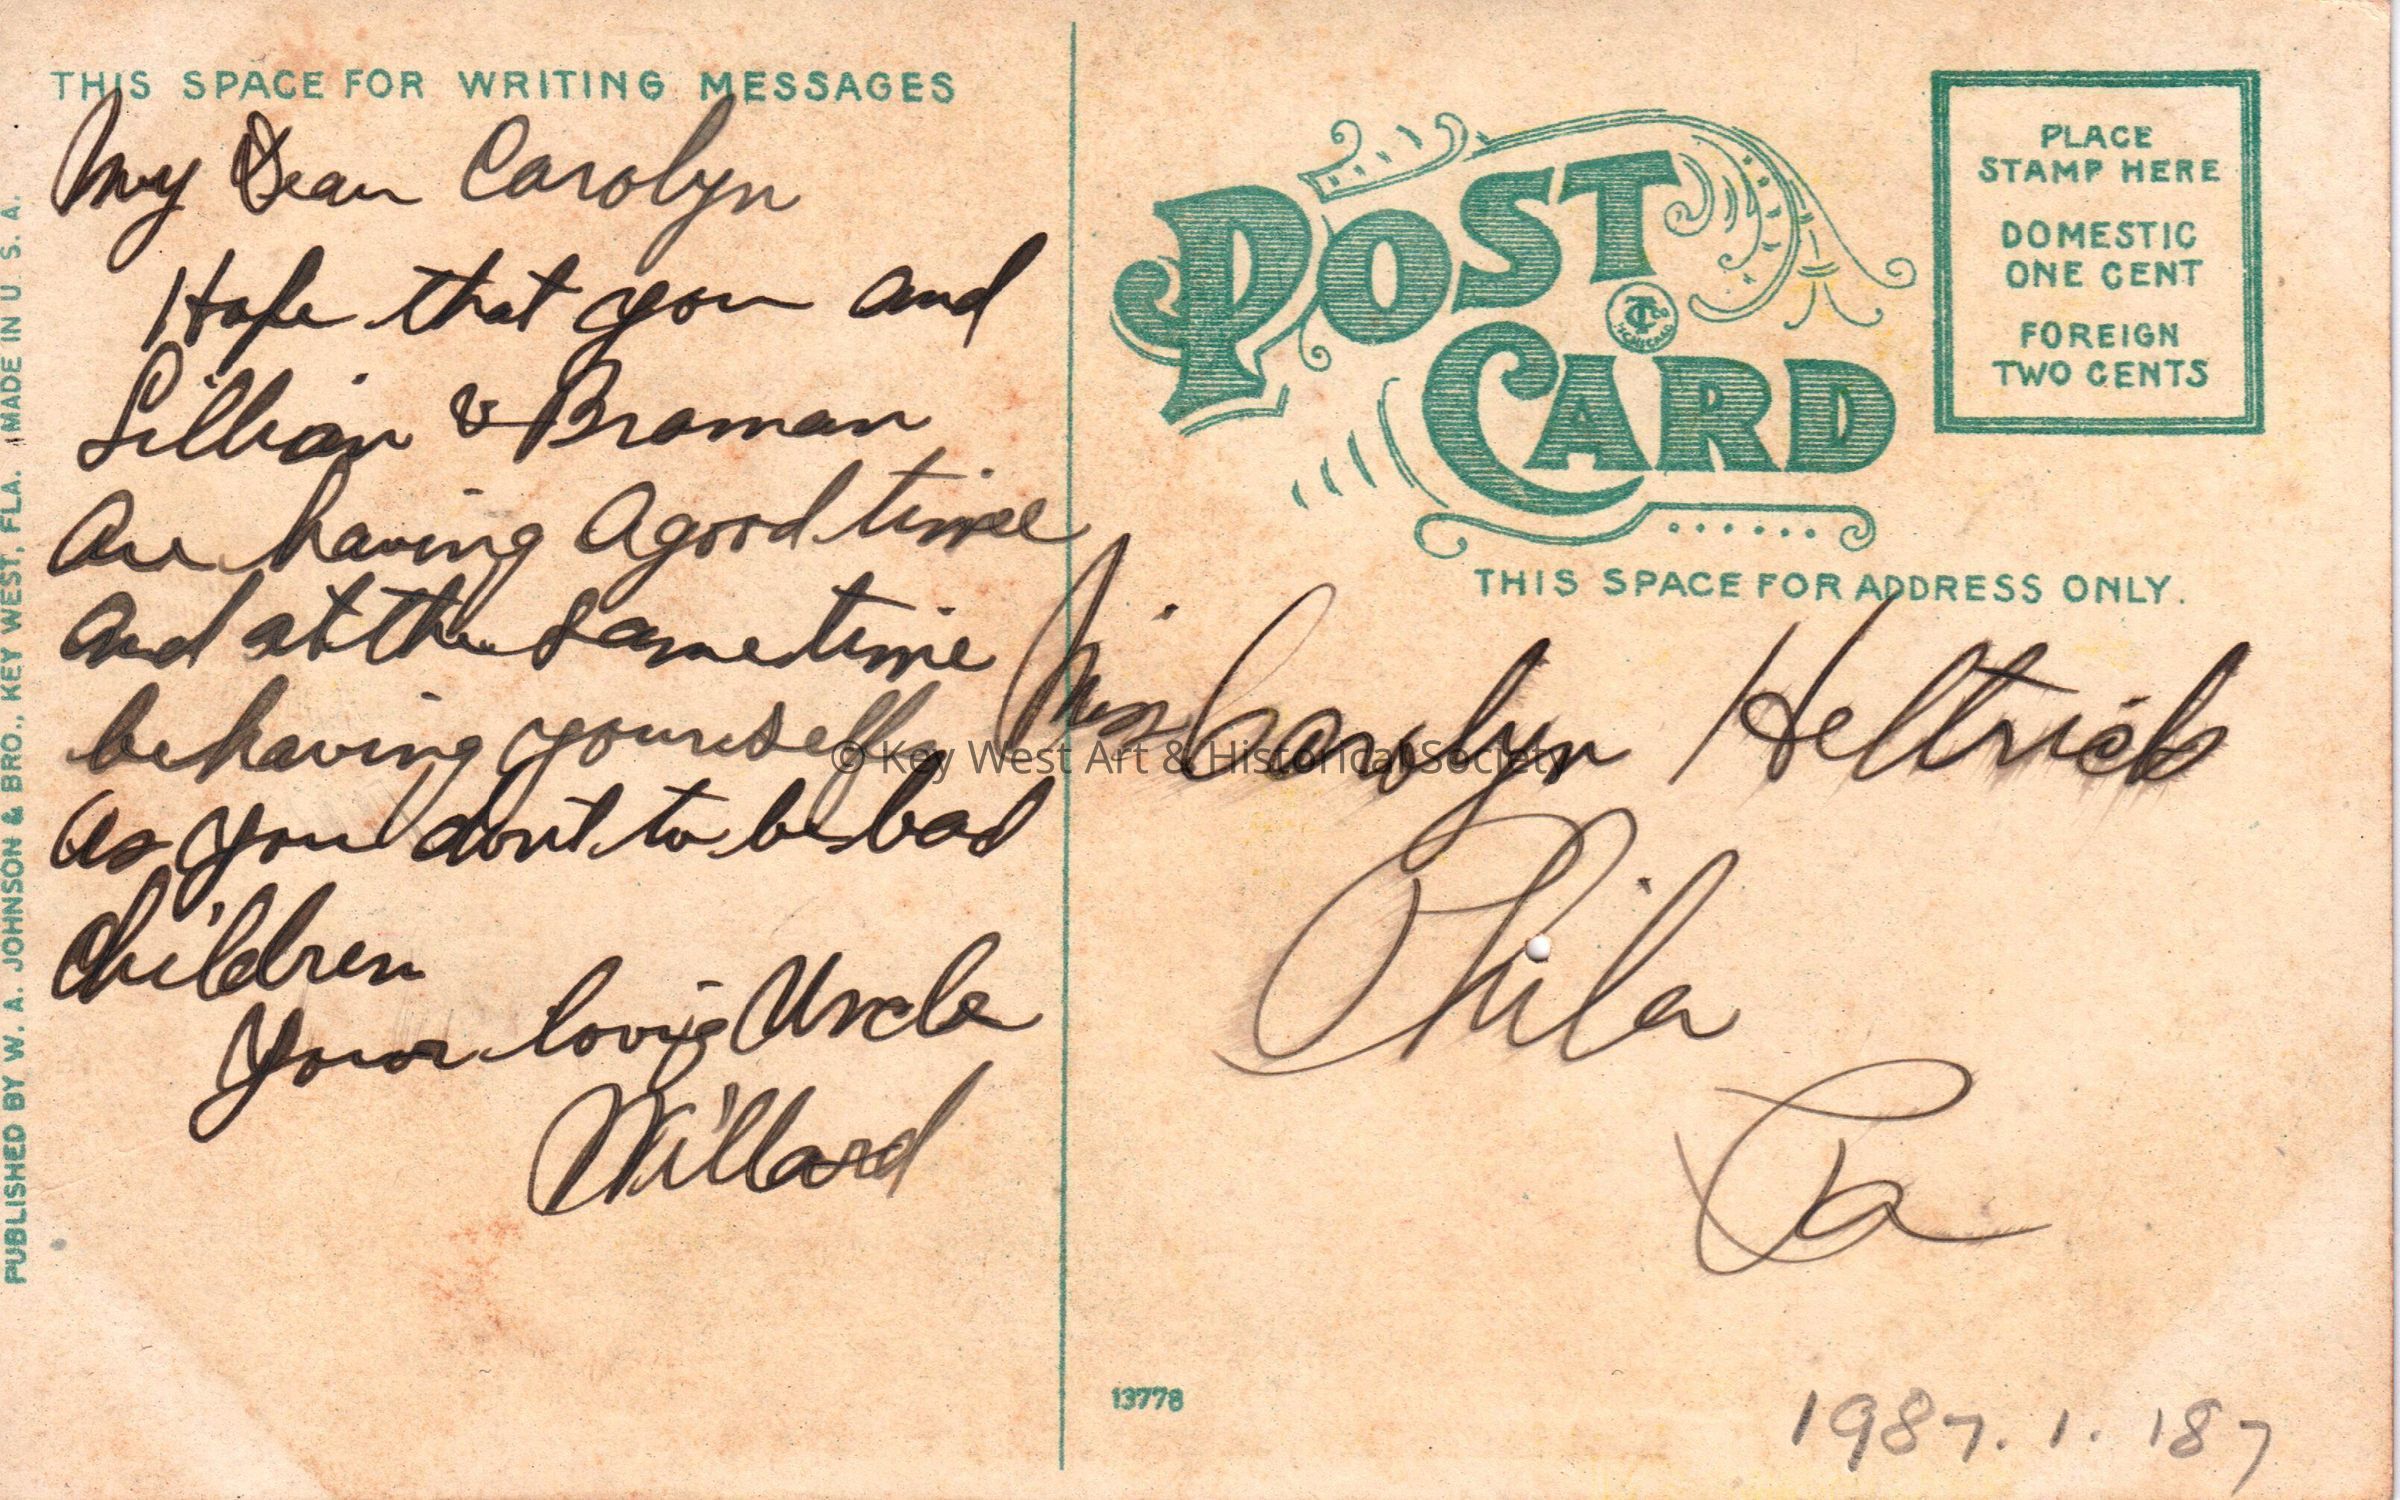 THIS SPACE FOR WRITING MESSAGES
My Dear Carolyn
Hope that you and
Lillian & Braman
are having a good time
and at the same time
behaving yourselfs
as you don't to be bad
children
Your loving Uncle
Willard
PUBLISHED BY W. A. JOHNSON & BRO., KEY WEST, FLA. MADE IN U. S. A.
POST CARD
PLACE
STAMP HERE
DOMESTIC
ONE CENT
FOREIGN
TWO CENTS
THIS SPACE FOR ADDRESS ONLY.
Miss Carolyn Heltrick
Phila
Pa
13778
1987.1.187
© Key West Art & Historical Society